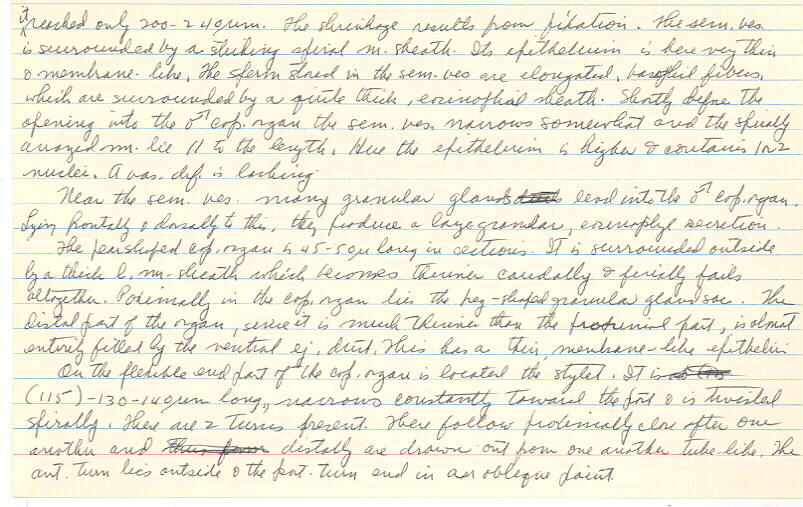 it reached only 200-240µm. The shrinkage results from fixation. The sem. ves.
is surrounded by a striking spiral m. sheath. Its epithelium is here very thin
& membrane-like. The sperm stored in the sem. ves are elongated, basophil fibers,
which are surrounded by a quite thick, eosinophial sheath. Shortly before the
opening into the ♂ cop. organ the sem. ves. narrows somewhat and the spirally
arranged m. lie 11 to the length. Here the epithelium is higher & contains 1 or 2
nuclei. A vas. def. is lacking.
Near the sem. ves. many granular glands lead into the ♂ cop. organ.
Lying frontally & dorsally to this, they produce a large granular, eosinophyl secretion.
The pearshaped cop. organ is 45-50µ long in sections. It is surrounded outside
by a thick l. m-sheath which becomes thinner caudally & finally fails
altogether. Proximally in the cop. organ lies the peg-shaped granular gland sac. The
distal part of the organ, since it is much thinner than the proximal part, is almost
entirely filled by the ventral ej. duct. This has a thin, membrane-like epithelium
On the flexible end part of the cop. organ is located the stylet. It is
(115)-130-140µm long, narrows constantly toward the post & is twisted
spirally. There are 2 turns present. These follow proximally close after one
another and distally are drawn out from one another tube-like. The
ant. turn lies outside & the post. turn end in an oblique point.